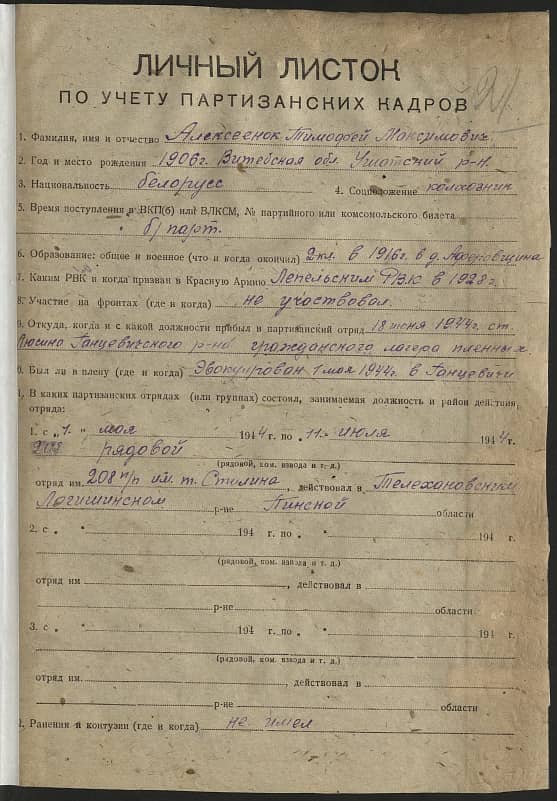 ЛИЧНЫЙ ЛИСТОК
ПО УЧЕТУ ПАРТИЗАНСКИХ КАДРОВ
1. Фамилия, имя и отчество Алексеенок Тимофей Максимович
2. Год и место рождения 1906 г. Витебская обл. Ушатский р-н.
3. Национальность белорусс 4. Соцположение колхозник
5. Время поступления в ВКП(б) или ВЛКСМ, № партийного или комсомольского билета
б/парт.
6. Образование: общее и военное (что и когда окончил) 2 кл. в 1916 г. в д.
7. Каким РВК и когда призван в Красную Армию Лепельским РВК в 1928 г.
8. Участие на фронтах (где и когда) не участвовал
9. Откуда, когда и с какой должности прибыл в партизанский отряд 1944 г. ст.
Люсино Ганцевичского р-на гражданского лагера пленных.
0. Был ли в плену (где и когда) Эвокуирован 1 мая 1944 г. в Ганцевичи
1. В каких партизанских отрядах (или группах) состоял, занимаемая должность и район действия
отряда:
1. с „ 1 " мая 1944 г. по „ 11 " июля 1944 г.
рядовой
(рядовой, ком. взвода и т. д.)
отряд им. 208 п/п им. т. Сталина, действовал в Телехановском
Логишинском р-не Пинской области
2. с „ " 194 г. по „ " 194 г.
(рядовой, ком. взвода и т. д.)
отряд им. , действовал в
р-не области
3. с „ " 194 г. по „ " 194 г.
(рядовой, ком. взвода и т. д.)
отряд им. , действовал в
р-не области
Ранения и контузии (где и когда) не имел